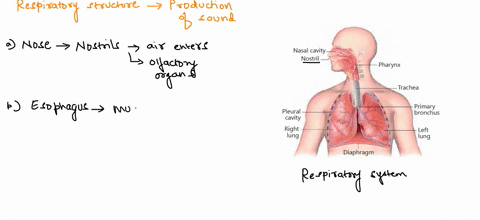 Respiratory structure → Production of sound
a) Nose → Nostrils → air enters
↳ olfactory organs
b) Esophagus → mu
Nasal cavity
Nostril
Pharynx
Trachea
Pleural cavity
Primary bronchus
Right lung
Left lung
Diaphragm
Respiratory system